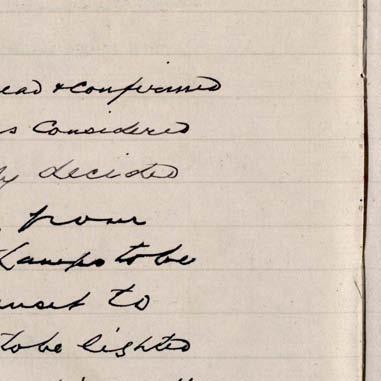 ead & confirmed
s considered
y decided
from
Lamps to be
unset to
to be lighted